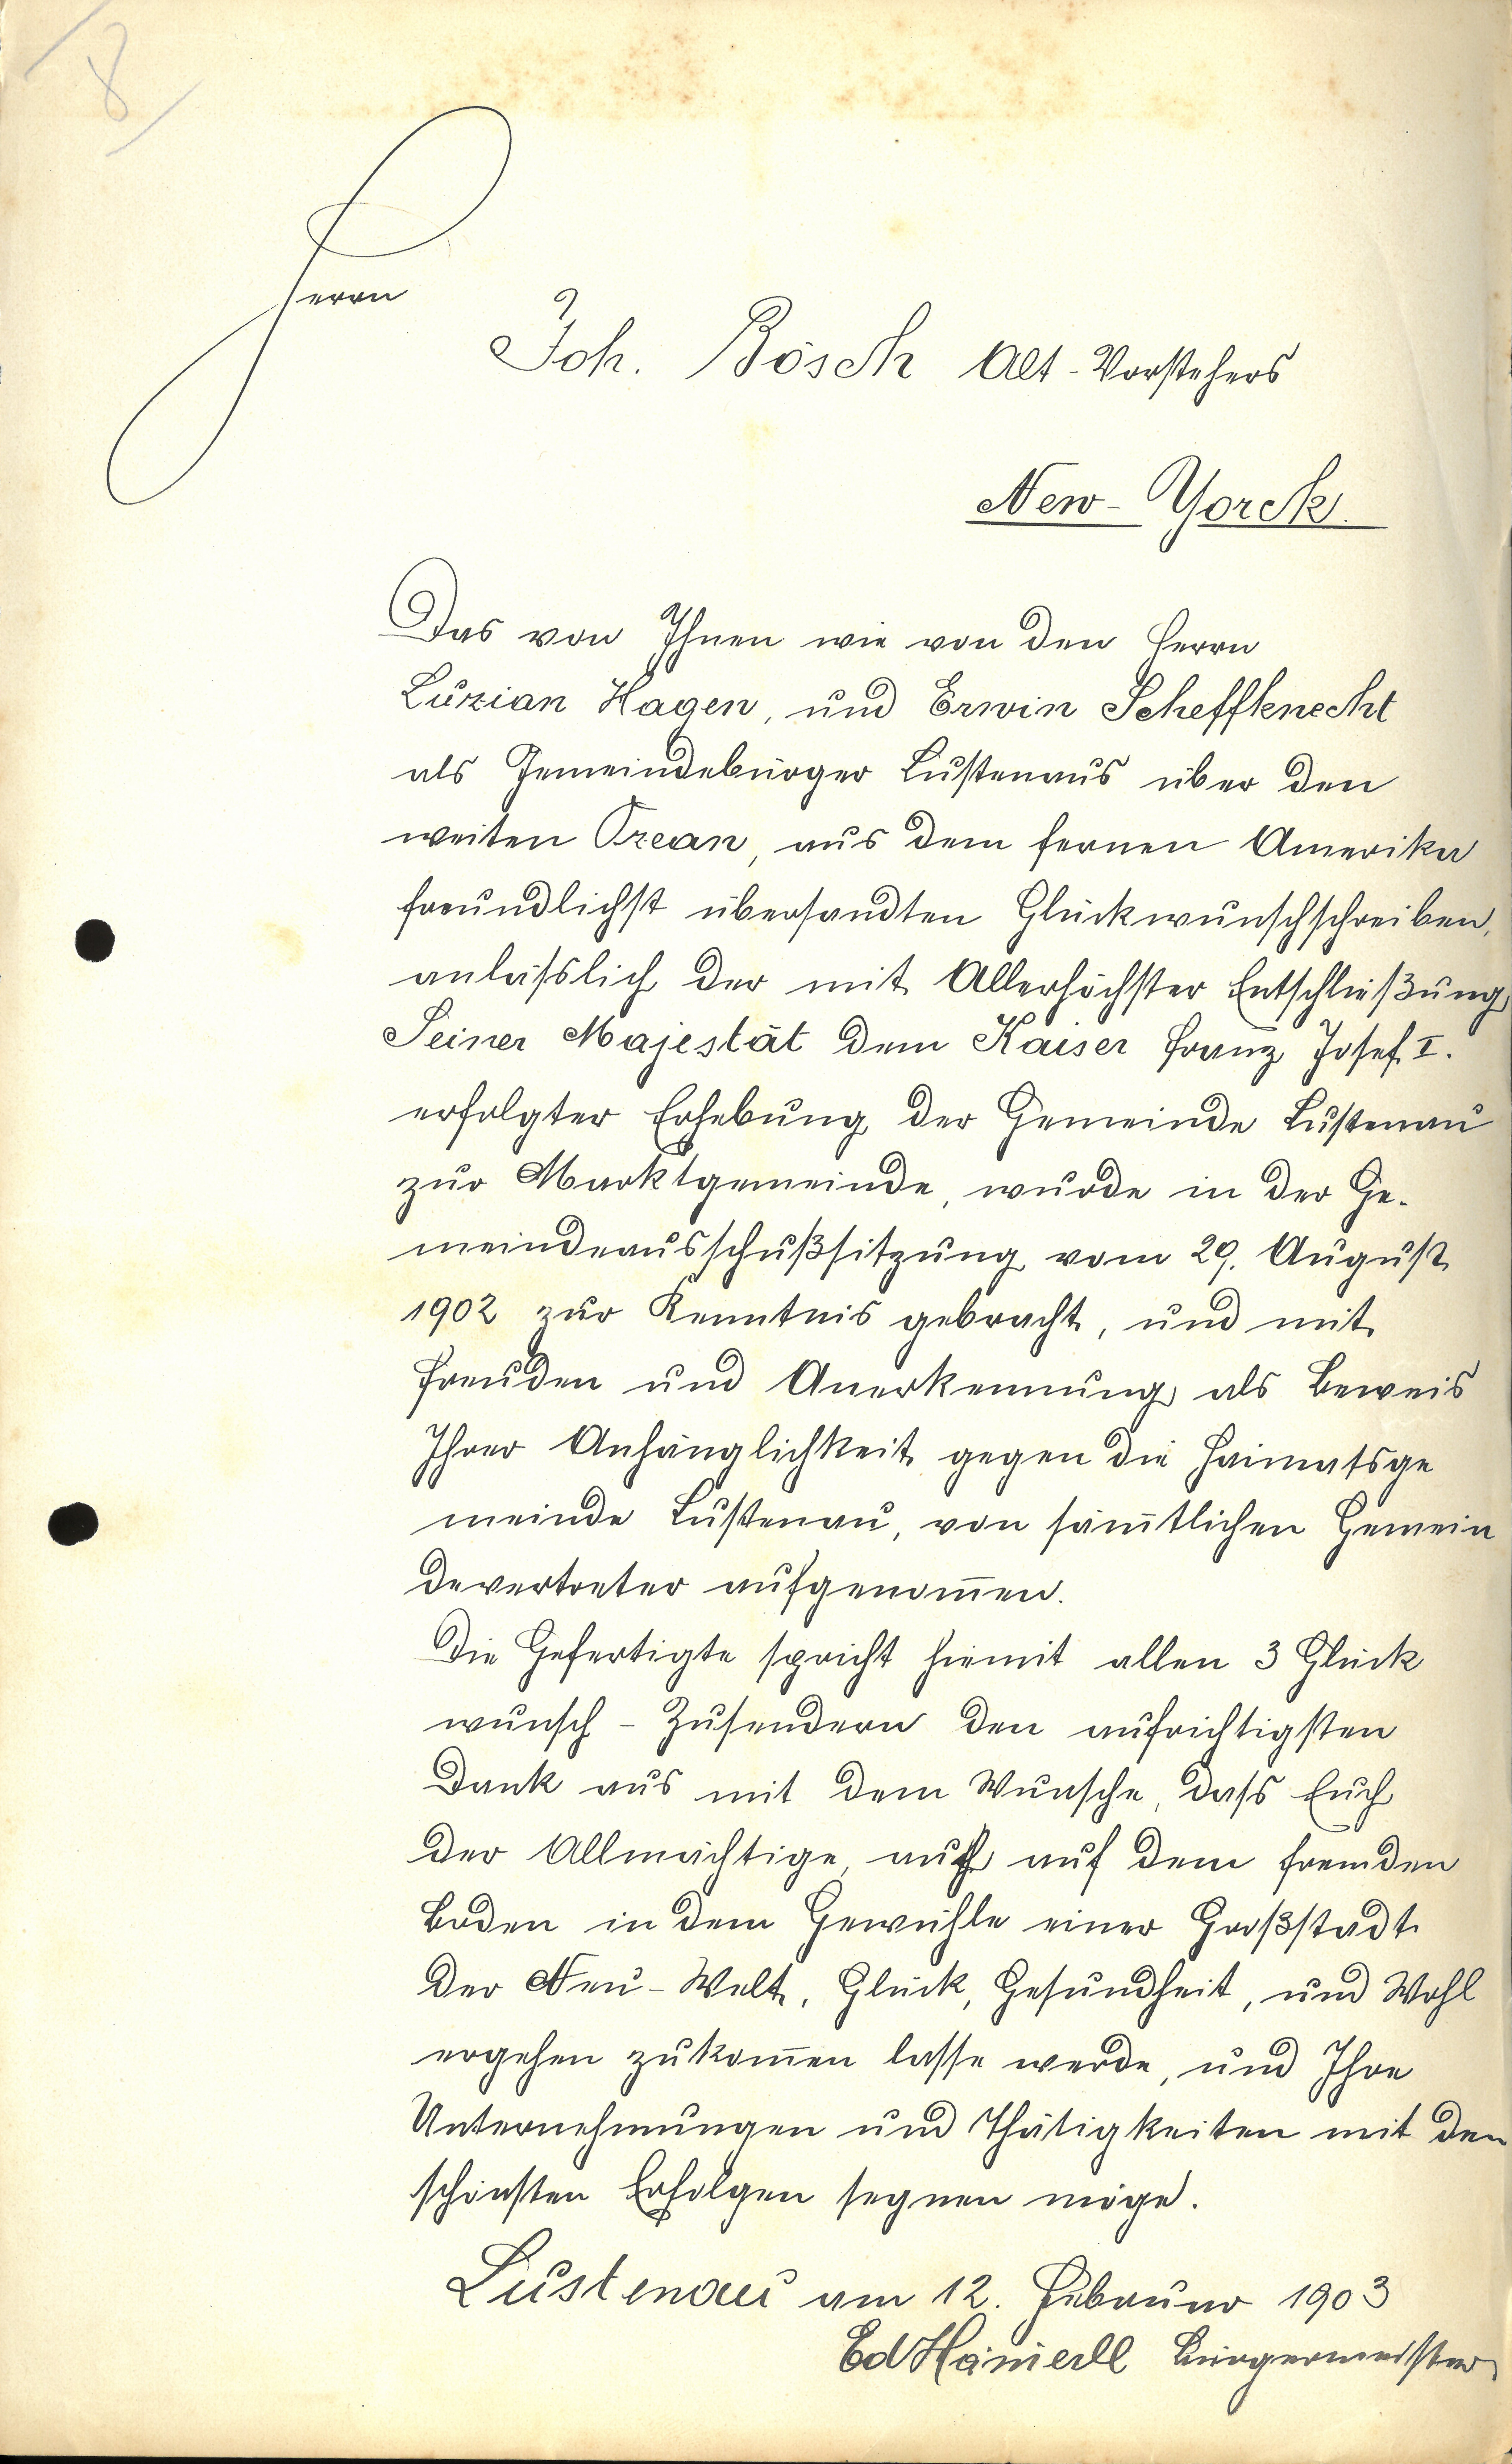 8
Herrn
Joh. Bösch Alt-Vorstehers
New-Yorck.
Das von Ihnen wie von den Herrn
Luzian Hagen, und Erwin Scheffknecht
als Gemeindebürger Lustenaus über den
weiten Ozean, aus dem fernen Amerika
freundlichst übersandten Glückwunschschreiben,
anläßslich der mit Allerhöchster Entschließung
Seiner Majestät dem Kaiser Franz Josef I.
erfolgter Erhebung der Gemeinde Lustenau
zur Marktgemeinde, wurde in der Ge-
meindeausschußsitzung vom 29. August
1902 zur Kenntnis gebracht, und mit
Freuden und Anerkennung als Beweis
Ihrer Anhänglichkeit gegen die Heimatsge
meinde Lustenau, von säm̅tlichen Gemein
devertreter aufgenom̅en.
Die Gefertigte spricht hiemit allen 3 Glück
wunsch - Zusendern den aufrichtigsten
Dank aus mit dem Wunsche, dass Euch
der Allmächtige, auch auf dem fremden
Boden in dem Gewühle einer Großstadt
der Neu-Welt, Glück, Gesundheit, und Wohl
ergehen zukom̅en lasse werde, und Ihre
Unternehmungen und Thätigkeiten mit den
schönsten Erfolgen segnen möge.
Lustenau am 12. Februar 1903
Ed Hämerle Bürgermeister